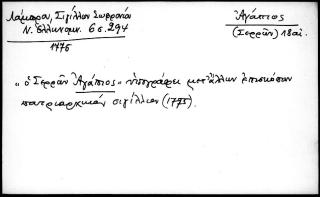 Λάμπρου, Σιγίλλιον Σωφρονίου
Ν. Ἑλληνομν. 6 σ. 294
1775
Ἀγάπιος
(Σερρῶν) 18 αἰ.
"ὁ Σερρῶν Ἀγάπιος" ὑπογράφει μετ' ἄλλων ἐπισκόπων
πατριαρχικὸν σιγίλλιον (1775).